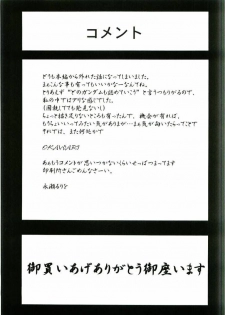 コメント
どうも本編から外れた話になってしまいました。
まぁこんな事も有ってもいいかなーなんてね。
とりあえず“どのガンダムも認めていこう”と言うつもりがるので、
私の中ではアリな感じでした。
ちょっと描き足りないところも有ったんで、機会が有れば、
もうちょいいってみたい気が有りますが…まぁ気が向いたらってことで
それでは、また何処かで
あぁもうコメントが思いつかないくらいせっぱつまってます
印刷所さんごめんなさいー。
御買いあげありがとう御座います